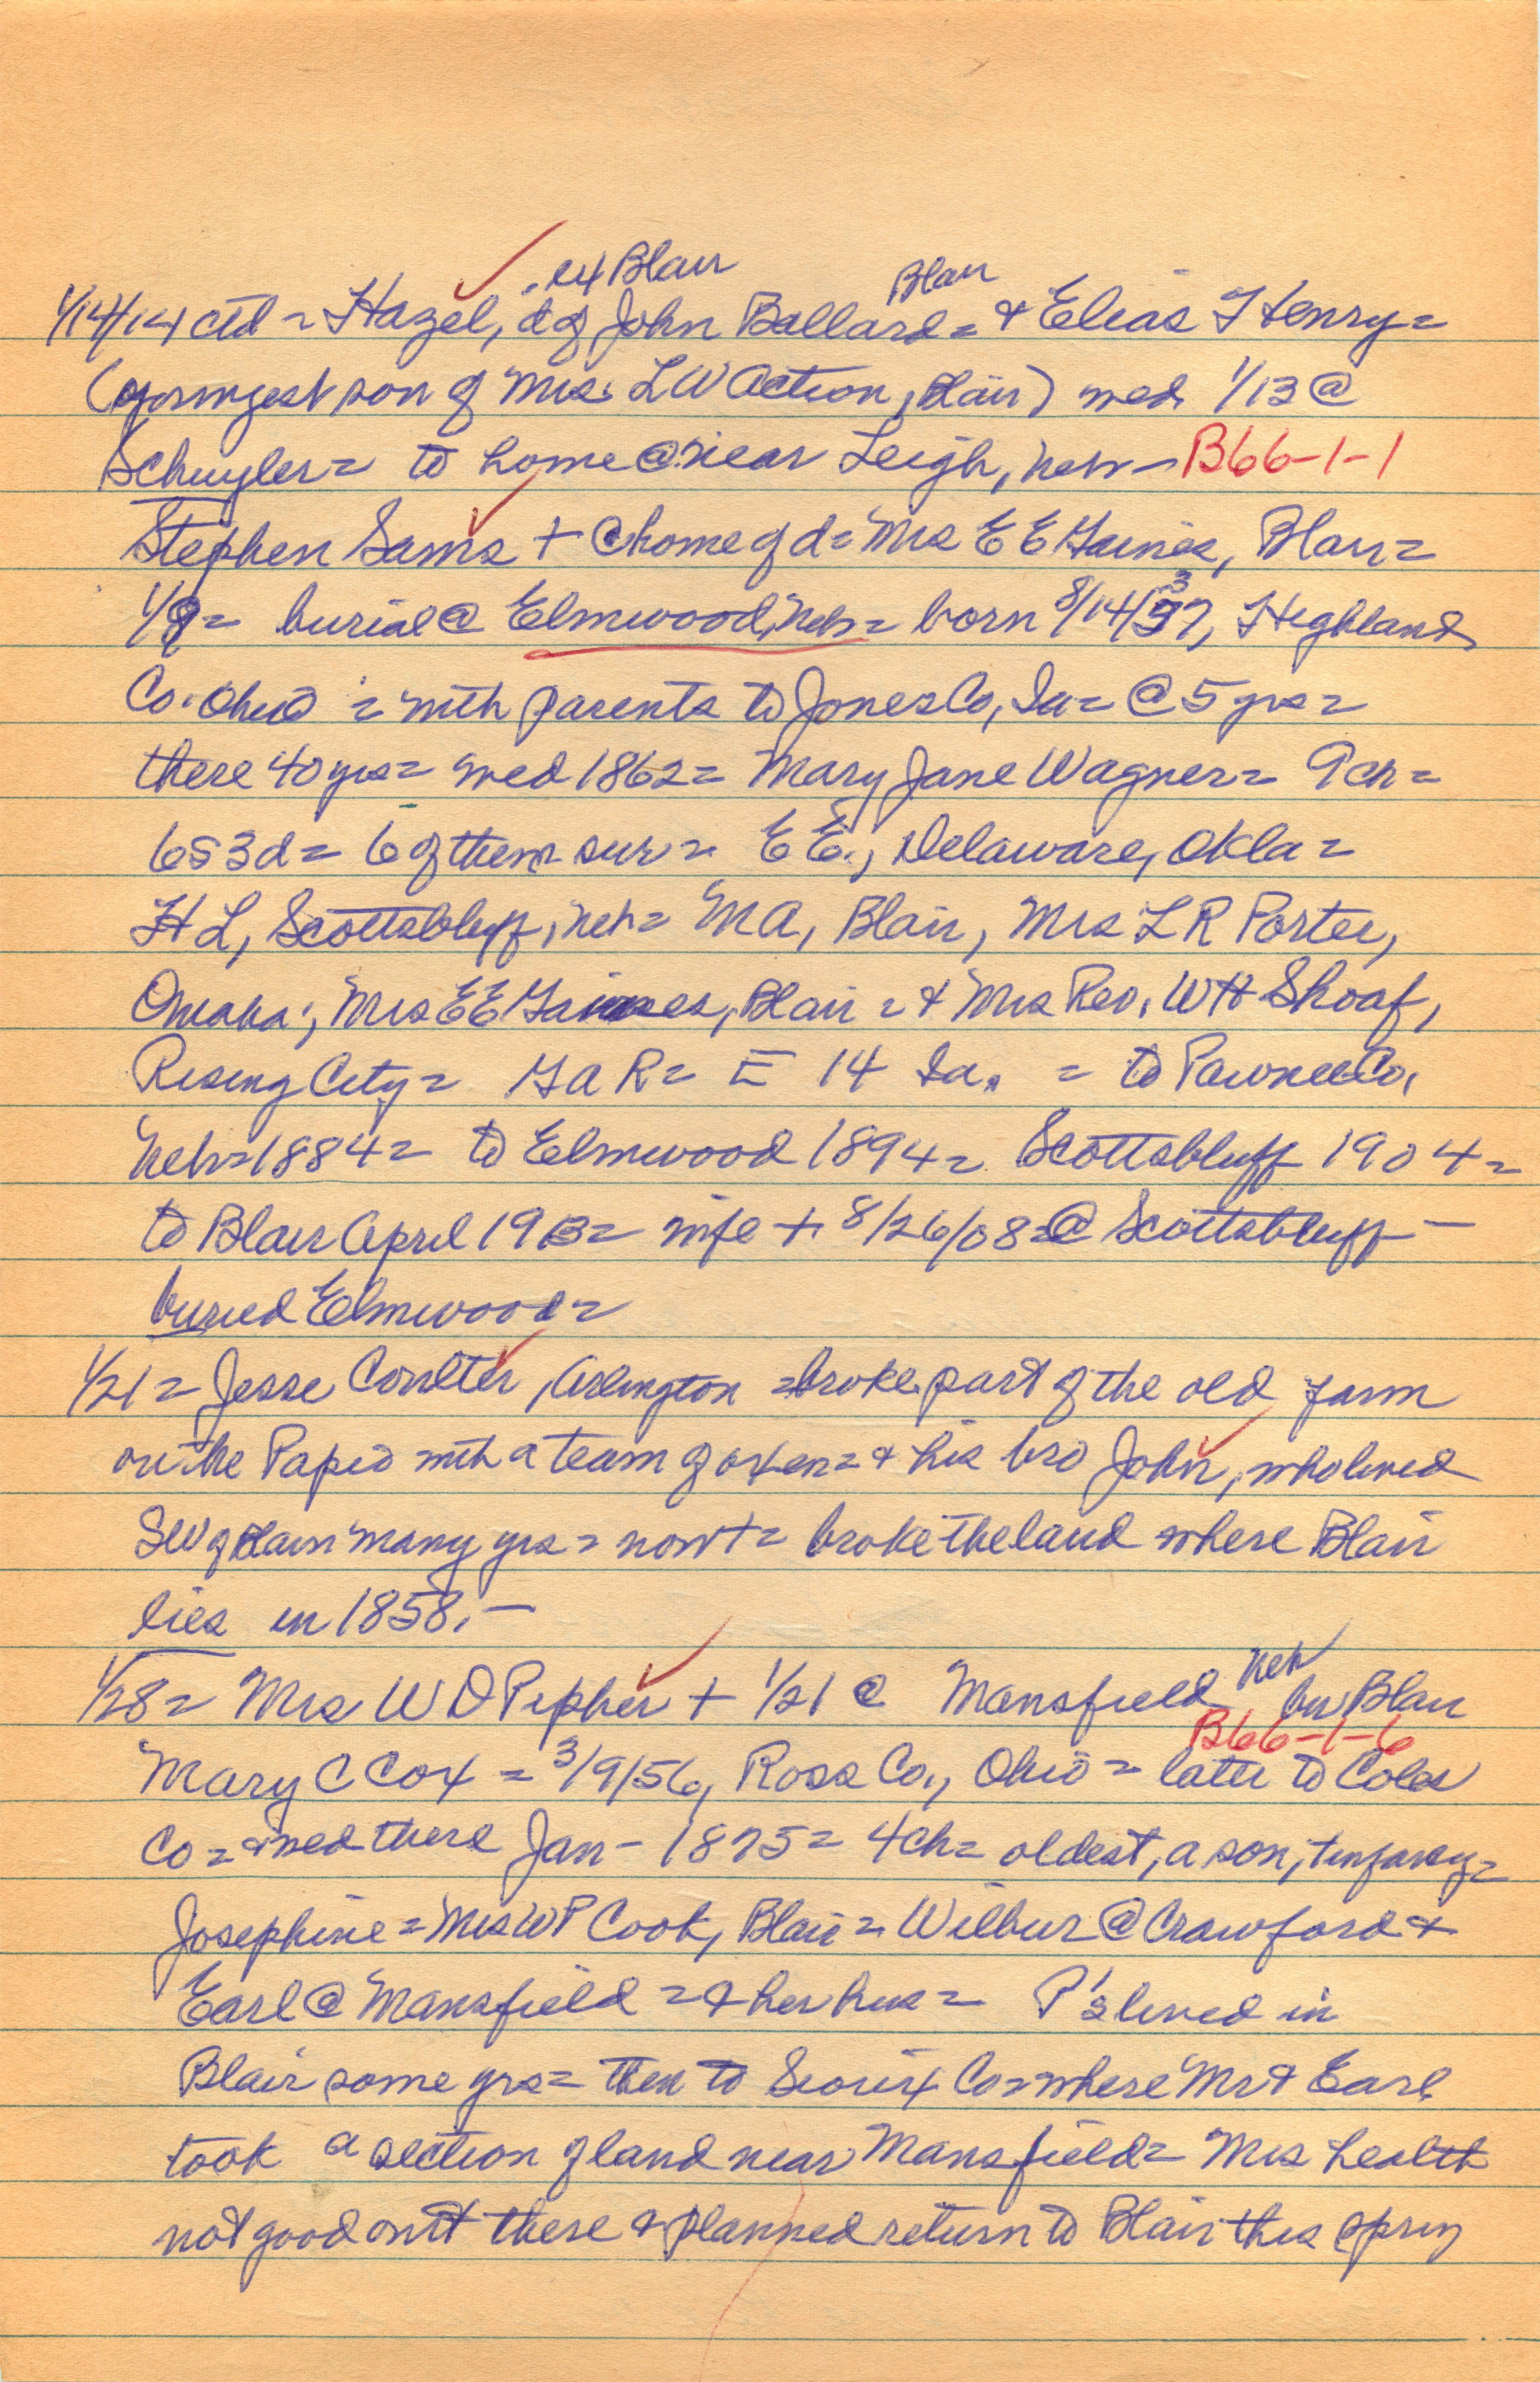 ex Blair Blair
1/14/14 ctd = Hazel, d of John Ballard = & Elias Henry =
(youngest son of Mrs. L W Action, Blair) wed 1/13 @
Schuyler = to home @ near Leigh, Neb - B66-1-1
Stephen Sams + @ home of d = Mrs E E Gaines, Blair =
1/9 = burial @ Elmwood, Neb = born 8/14/37, Highland
Co. Ohio = with parents to Jones Co, Ia = @ 5 yrs =
there 40 yrs = wed 1862 = Mary Jane Wagner = 9 ch =
6s 3d = 6 of them sur = E E., Delaware, Okla =
H L, Scottsbluff, Neb = M A, Blair, Mrs L R Porter,
Omaha; Mrs E E Gaines, Blair = & Mrs Rev. W H Shoaf,
Rising City = G A R = E 14 Ia. = to Pawnee Co,
Neb = 1884 = to Elmwood 1894 = Scottsbluff 1904 =
to Blair April 1913 = wife + 8/26/08 = @ Scottsbluff -
buried Elmwood =
1/21 = Jesse Coulter, Arlington = broke part of the old farm
on the Papio with a team of oxen = & his bro John, who lived
SW of Blair many yrs = now + = broke the land where Blair
lies in 1858. -
1/28 = Mrs W D Pipher + 1/21 @ Mansfield Neb bur Blair
B66-1-6
Mary C Cox = 3/9/56, Ross Co., Ohio = latter to Coles
Co = & wed there Jan - 1875 = 4 ch = oldest, a son, +
Josephine = Mrs W P Cook, Blair = Wilbur @ Crawford &
Earl @ Mansfield = & her hus = P's lived in
Blair some yrs = then to Sioux Co = where Mr & Earl
took a section of land near Mansfield = Mrs health
not good out there & planned return to Blair this spring